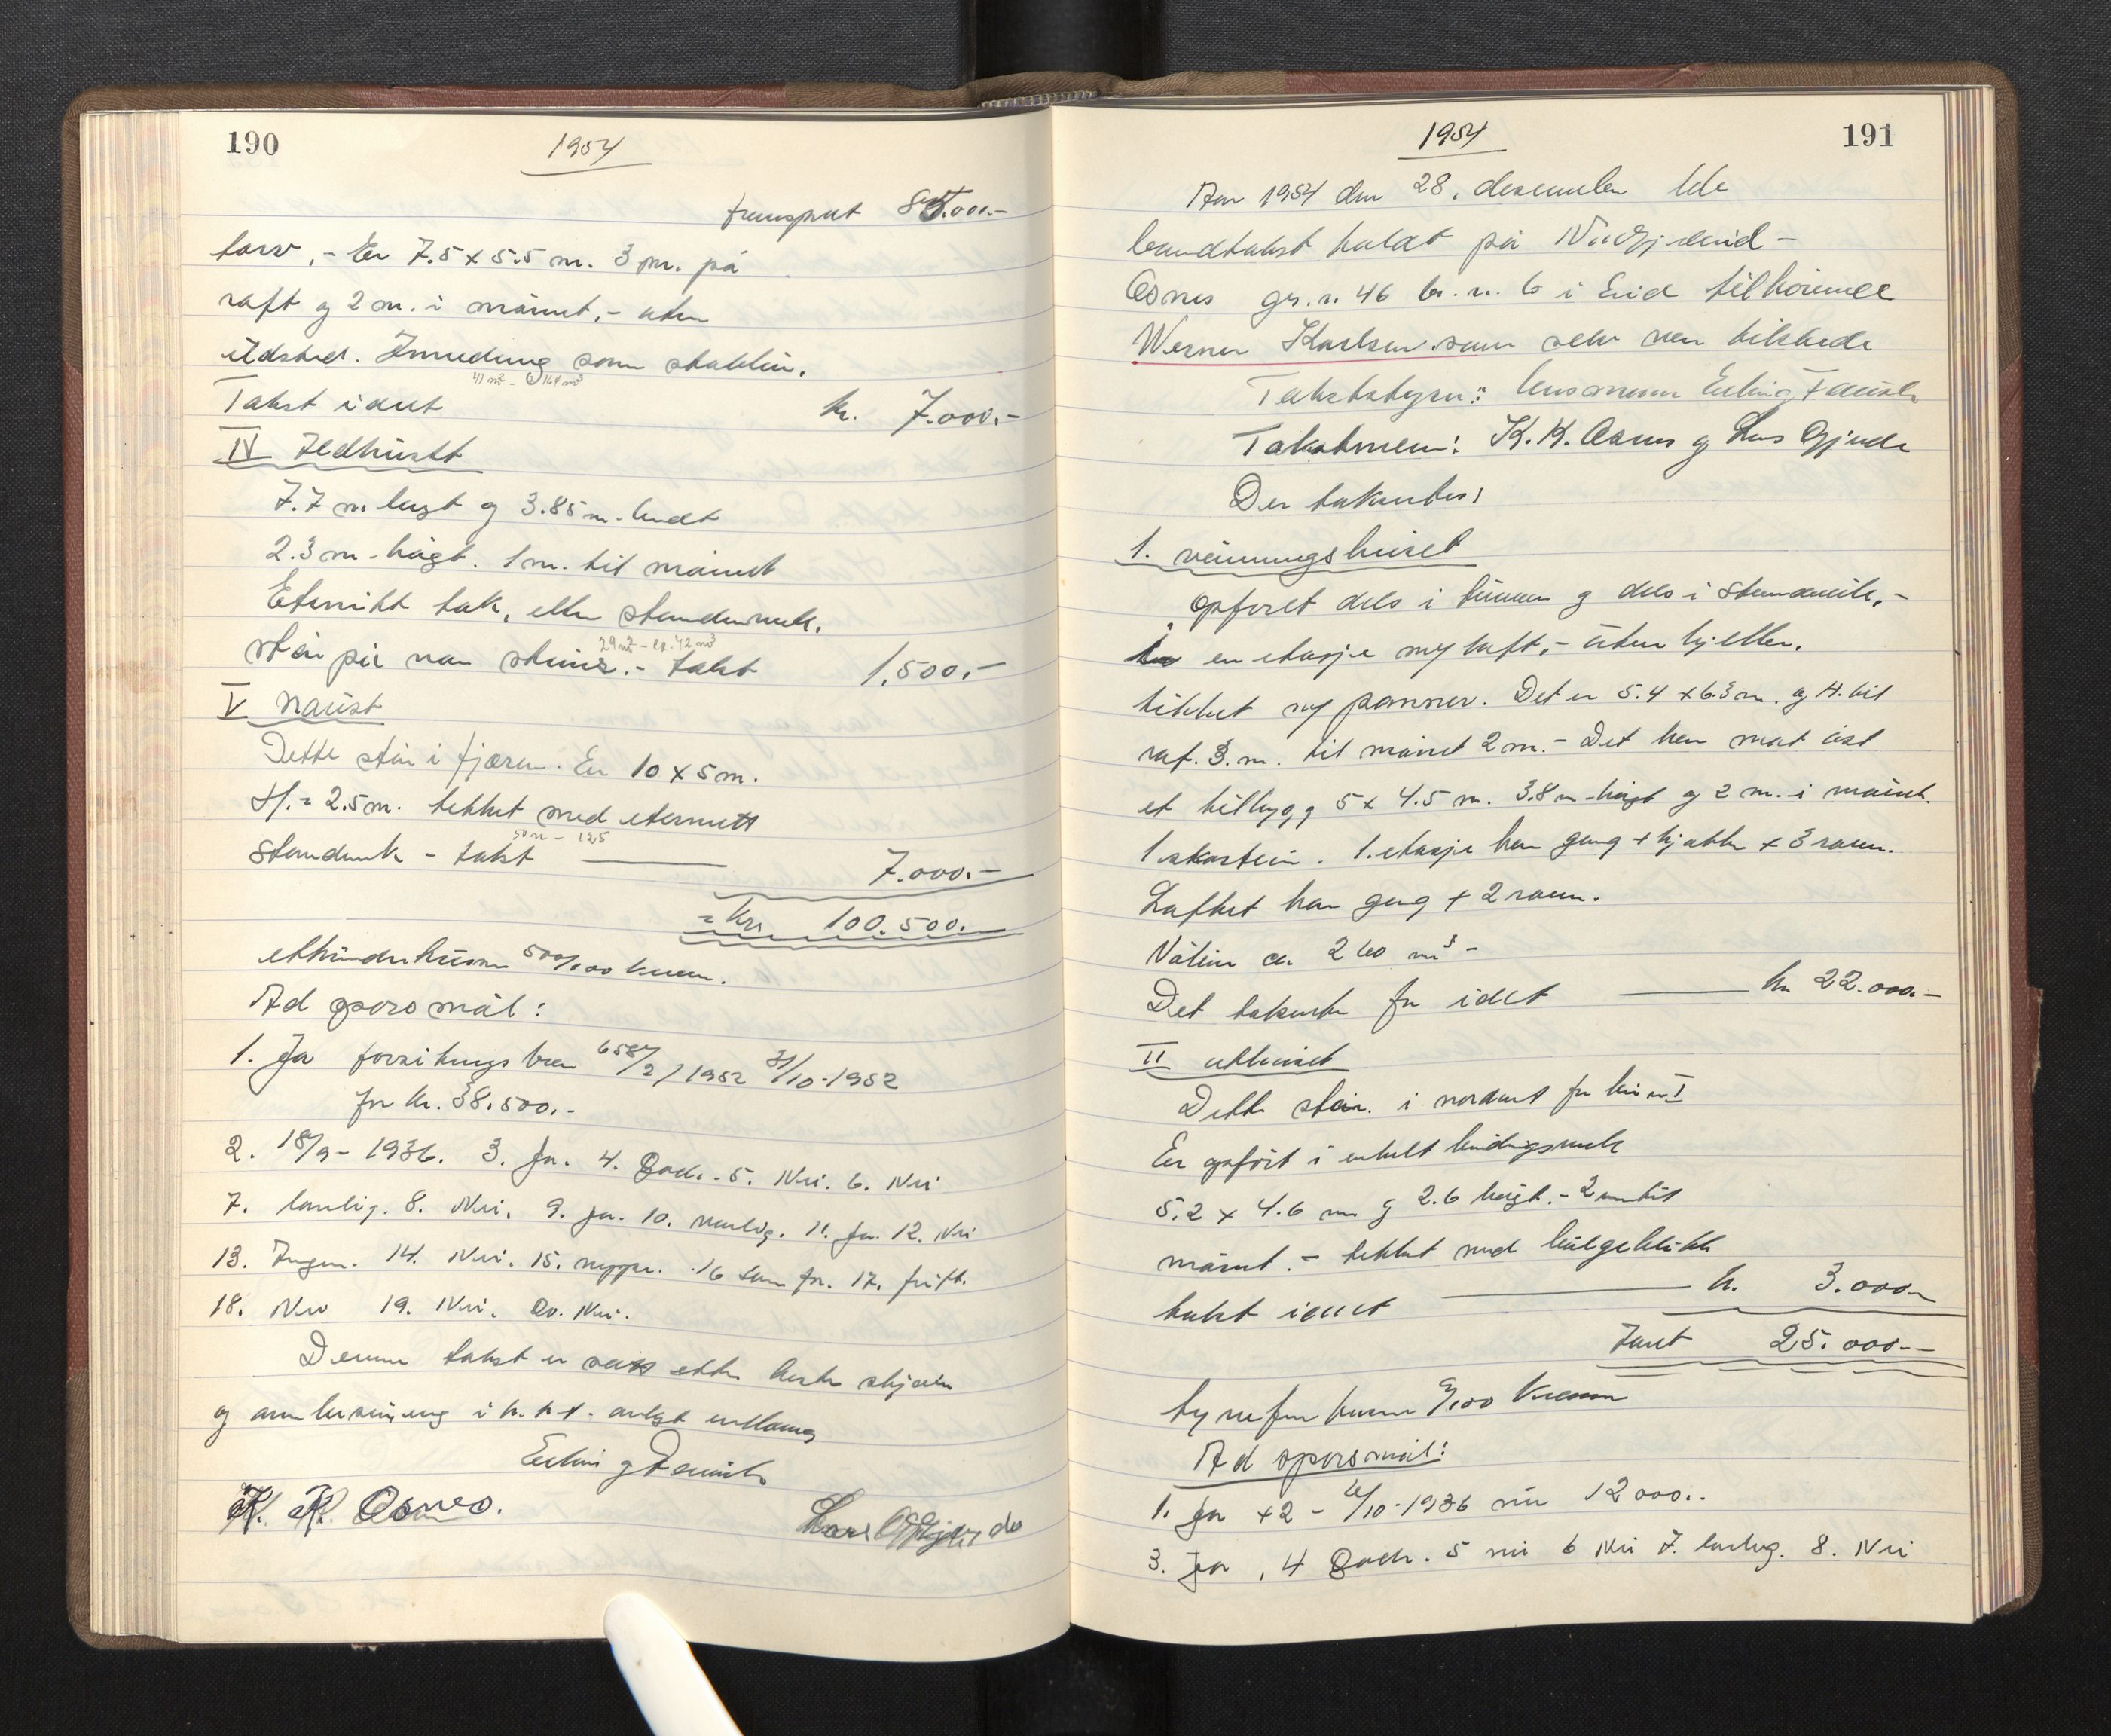 190
1954
transport 85.000.-
torv, - Er 7.5 x 5.5 m. 3 m. på
raft og 2 m. i mønet, - uten
ildsted. Innredning som stabbur.
41 m² - 164 m³
Takst i det kr. 7.000.-
IV Vedhuset
7.7 m langt og 3.85 m. bredt
2.3 m - høgt. 1 m. til mønet
Eternitt tak, eller stenderverk.
29 m² - ca. 42 m³
Står på noen steiner. - takst 1.500.-
V naust
Dette står i fjæra. Er 10 x 5 m.
H. = 2.5 m. tekket med eternitt
50 m - 125
Stenderverk - takst 7.000.-
= Kr. 100.500.-
Ad spørsmål:
1. Ja forsikringsbrev 6587/2/1952 31/10-1952
for kr. 38.500.-
2. 18/9 - 1936. 3. Ja. 4. Godt. 5. Nei. 6. Nei
7. lovlig. 8. Nei. 9. ja. 10. vanlig. 11. Ja. 12. Nei
13. Ingen. 14. Nei. 15. 16 som før. 17. fritt.
18. Nei 19. Nei. 20. Nei.
Denne takst er satt etter beste skjønn
og
Erling
K. K. Osnes. Lars Gjerde
191
1954
Aar 1954 den 28. desember ble
branntakst holdt på Nordfjordeid -
Osnes gr. n. 46 br. n. 6 i Eid tilhørende
Werner Karlsen som selv var tilstede
Takstbestyrer: lensmann Erling
Takstmenn: K. K. Osnes og Lars Gjerde
Der taksertes:
1. våningshuset
opføret dels i tømmer og dels i stenderverk, -
en etasje og loft, - uten kjeller.
tekket m/ panner. Det er 5.4 x 6.3 m. og H. til
raf. 3. m. til mønet 2 m. - Det har mot øst
et tilbygg 5 x 4.5 m. 3.8 m - høgt og 2 m. i mønet.
1 skorstein. 1. etasje har gang + kjøkken + 3 rom.
Loftet har gang + 2 rom.
Volum ca. 260 m³ -
Det takseres for i det kr 22.000.-
II uthuset
Dette står i nordvest for hus n I
Er opført i enkelt bindingsverk
5.2 x 4.6 m og 2.6 høgt. - 2 m til
mønet. - tekket med bølgeblikk
takst i det kr. 3.000.-
Sum 25.000.-
Ad spørsmål:
1. Ja + 2 - /10-1936 nr 12000..
3. Ja, 4 Godt. 5 nei 6 Nei 7. lovlig. 8. Nei